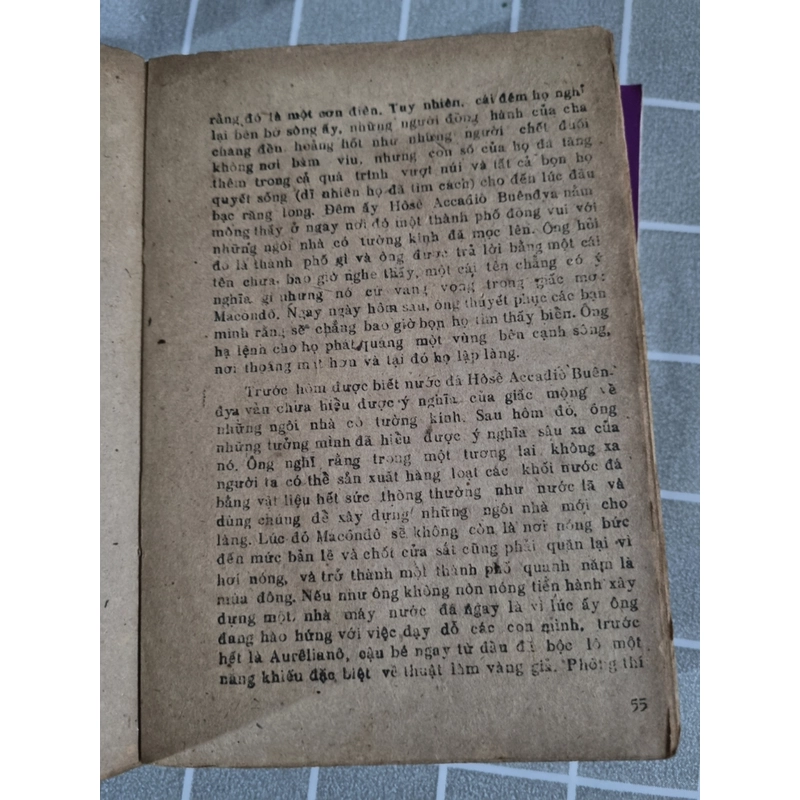 rằng đó là một cơn điên. Tuy nhiên, cái đêm họ nghỉ
lại bên bờ sông ấy, những người đồng hành của cha
chàng đều hoảng hốt như những người chết đuối
không nơi bám víu, nhưng con số của họ đã tăng
thêm trong cả quá trình vượt núi và tất cả bọn họ
quyết sống (dĩ nhiên họ đã tìm cách) cho đến lúc đầu
bạc răng long. Đêm ấy Hôsê Accađiô Buênđya nằm
mộng thấy ở ngay nơi đó một thành phố đông vui với
những ngôi nhà có tường kính đã mọc lên. Ông hỏi
đó là thành phố gì và ông được trả lời bằng một cái
tên chưa bao giờ nghe thấy, một cái tên chẳng có ý
nghĩa gì nhưng nó cứ vang vọng trong giấc mơ:
Macônđô. Ngay ngày hôm sau, ông thuyết phục các bạn
mình rằng sẽ chẳng bao giờ bọn họ tìm thấy biển. Ông
hạ lệnh cho họ phát quang một vùng bên cạnh sông,
nơi thoáng mát hơn và tại đó họ lập làng.
Trước hôm được biết nước đá Hôsê Accađiô Buên-
đya vẫn chưa hiểu được ý nghĩa của giấc mộng về
những ngôi nhà có tường kính. Sau hôm đó, ông
những tưởng mình đã hiểu được ý nghĩa sâu xa của
nó. Ông nghĩ rằng trong một tương lai không xa
người ta có thể sản xuất hàng loạt các khối nước đá
bằng vật liệu hết sức thông thường như nước lã và
dùng chúng để xây dựng những ngôi nhà mới cho
làng. Lúc đó Macônđô sẽ không còn là nơi nóng bức
đến mức bản lề và chốt cửa sắt cũng phải quăn lại vì
hơi nóng, và trở thành một thành phố quanh năm là
mùa đông. Nếu như ông không nôn nóng tiến hành xây
dựng một nhà máy nước đá ngay là vì lúc ấy ông
đang hào hứng với việc dạy dỗ các con mình, trước
hết là Aurêlianô, cậu bé ngay từ đầu đã bộc lộ một
năng khiếu đặc biệt về thuật làm vàng giả. Phòng thí
55